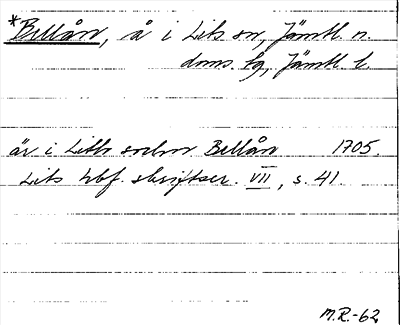 *Bellån, å i Lits sn, Jämtl. n.
doms. tg, Jämtl. l.
är i Lith sochn Bellån 1705.
Lits hbf. skriftser. VII, s. 41.
M.R-62